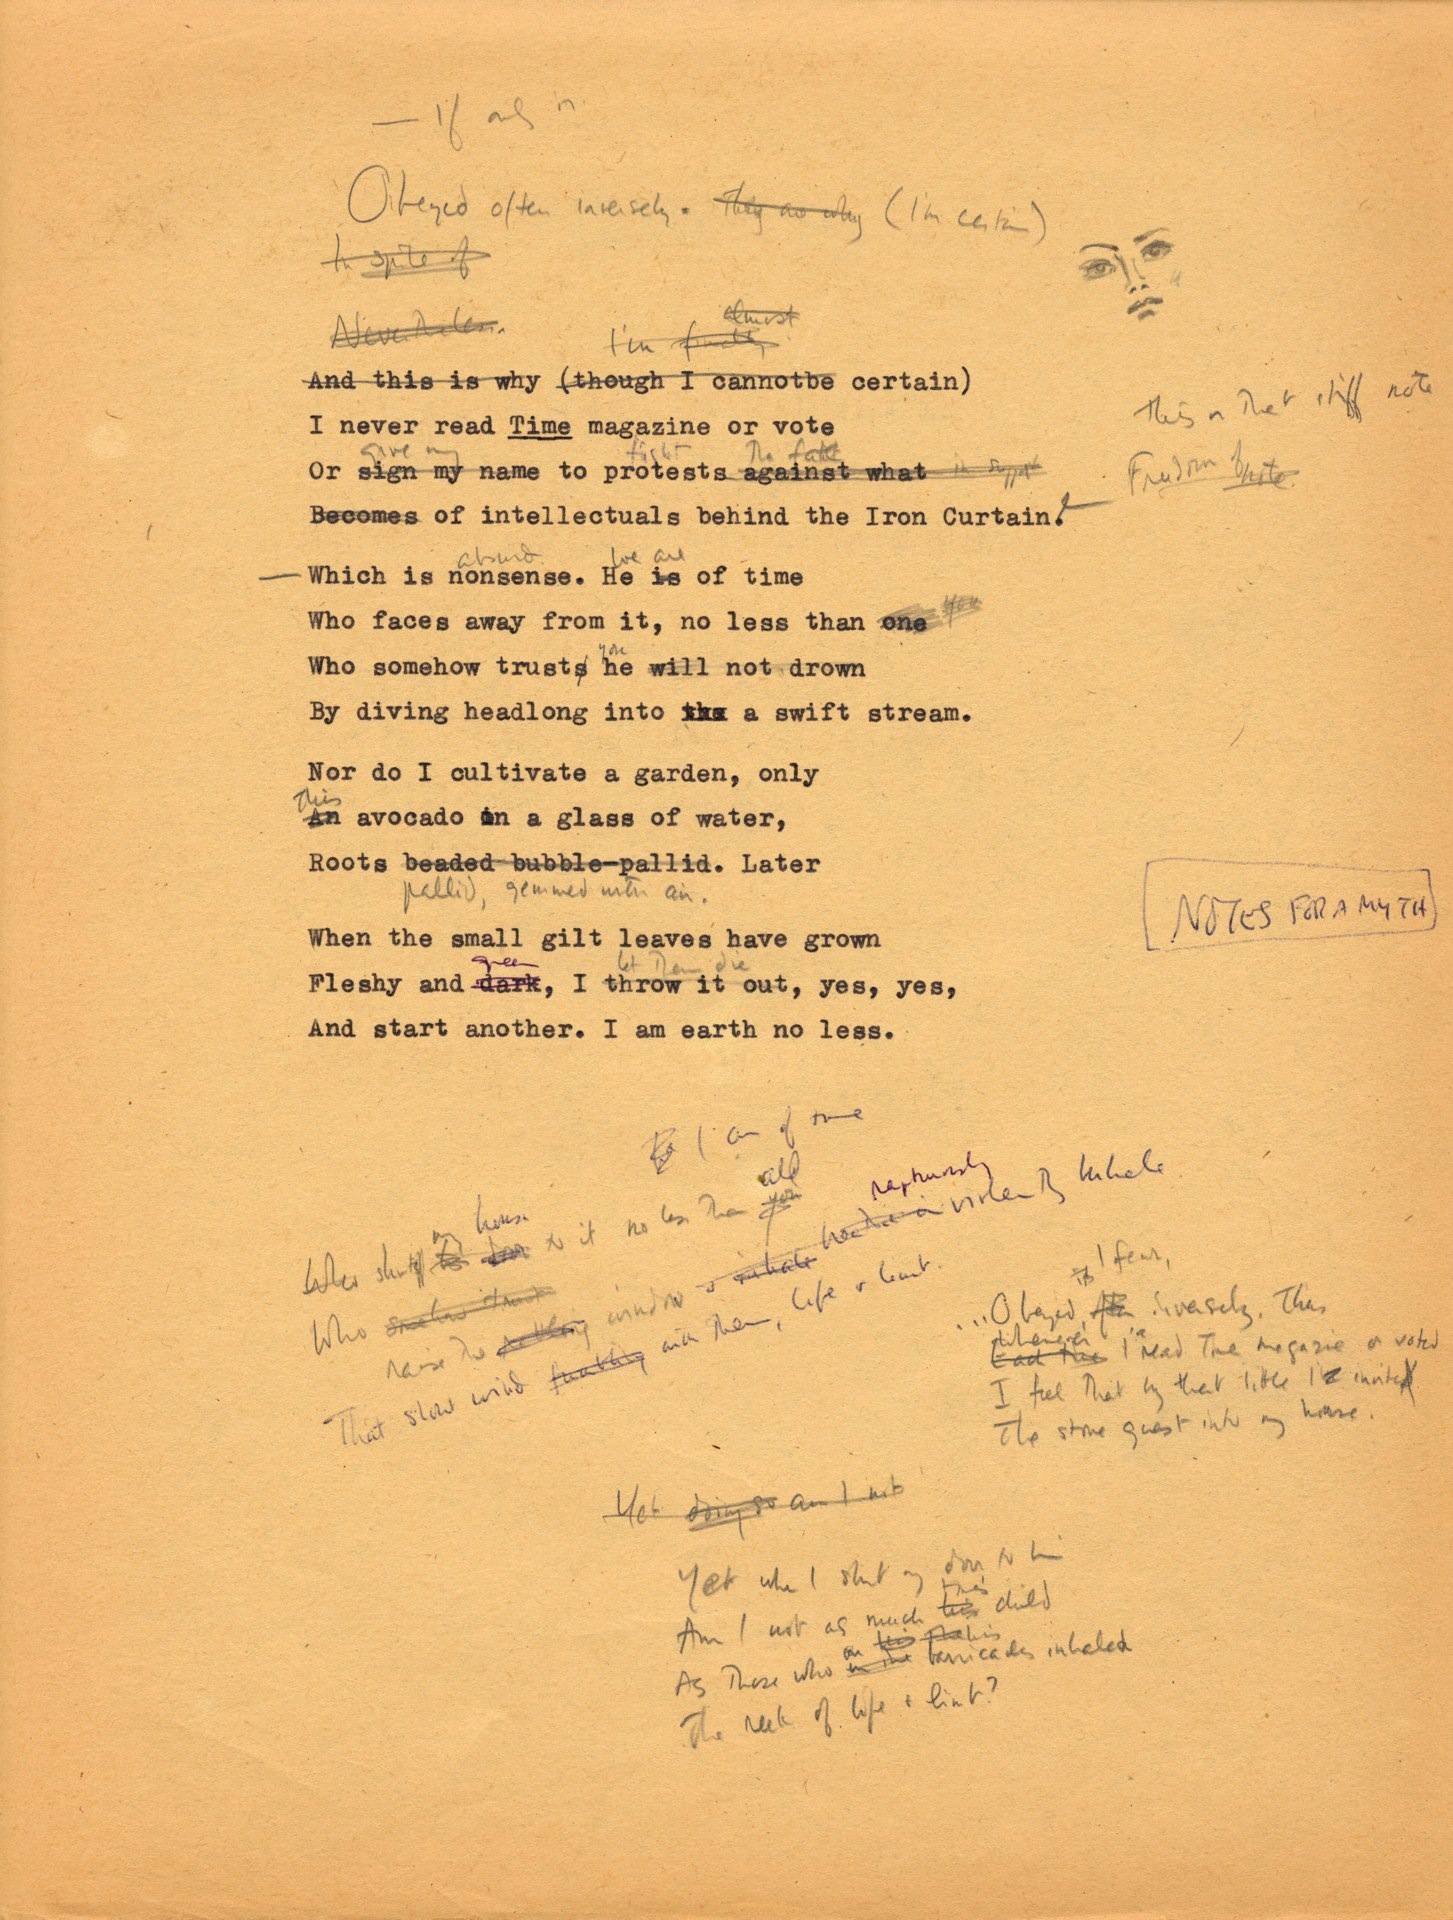 — If only in
Obeyed often inversely. They are why (I'm certain)
In spite of
Nevertheless.
almost
I'm finally
And this is why (though I cannotbe certain)
I never read Time magazine or vote
give my fight the fate
Or sign my name to protests against what in support
Becomes of intellectuals behind the Iron Curtain.
This or that stiff note
Freedom
absurd We are
Which is nonsense. He is of time
you
Who faces away from it, no less than one
you
Who somehow trusts he will not drown
By diving headlong into the a swift stream.
Nor do I cultivate a garden, only
This
An avocado in a glass of water,
Roots beaded bubble-pallid. Later
pallid, gemmed with air.
NOTES FOR A MYTH
When the small gilt leaves have grown
green let them die
Fleshy and dark, I throw it out, yes, yes,
And start another. I am earth no less.
I am of time
all
my house
Who shuts his door to it no less than you
rapturously
Who somehow trust
raise the rattling window & inhale violently inhale
That slow wind with them, life & lint.
I fear,
...Obeyed, often inversely. Thus
Whenever
Each time I've read Time magazine or voted
I feel that by that little I've invited
The stone guest into my house.
Yet doing so am I not
Yet when I shut my door to him
time's
Am I not as much his child
on
As those who in the barricades inhaled
The reek of life & lint?